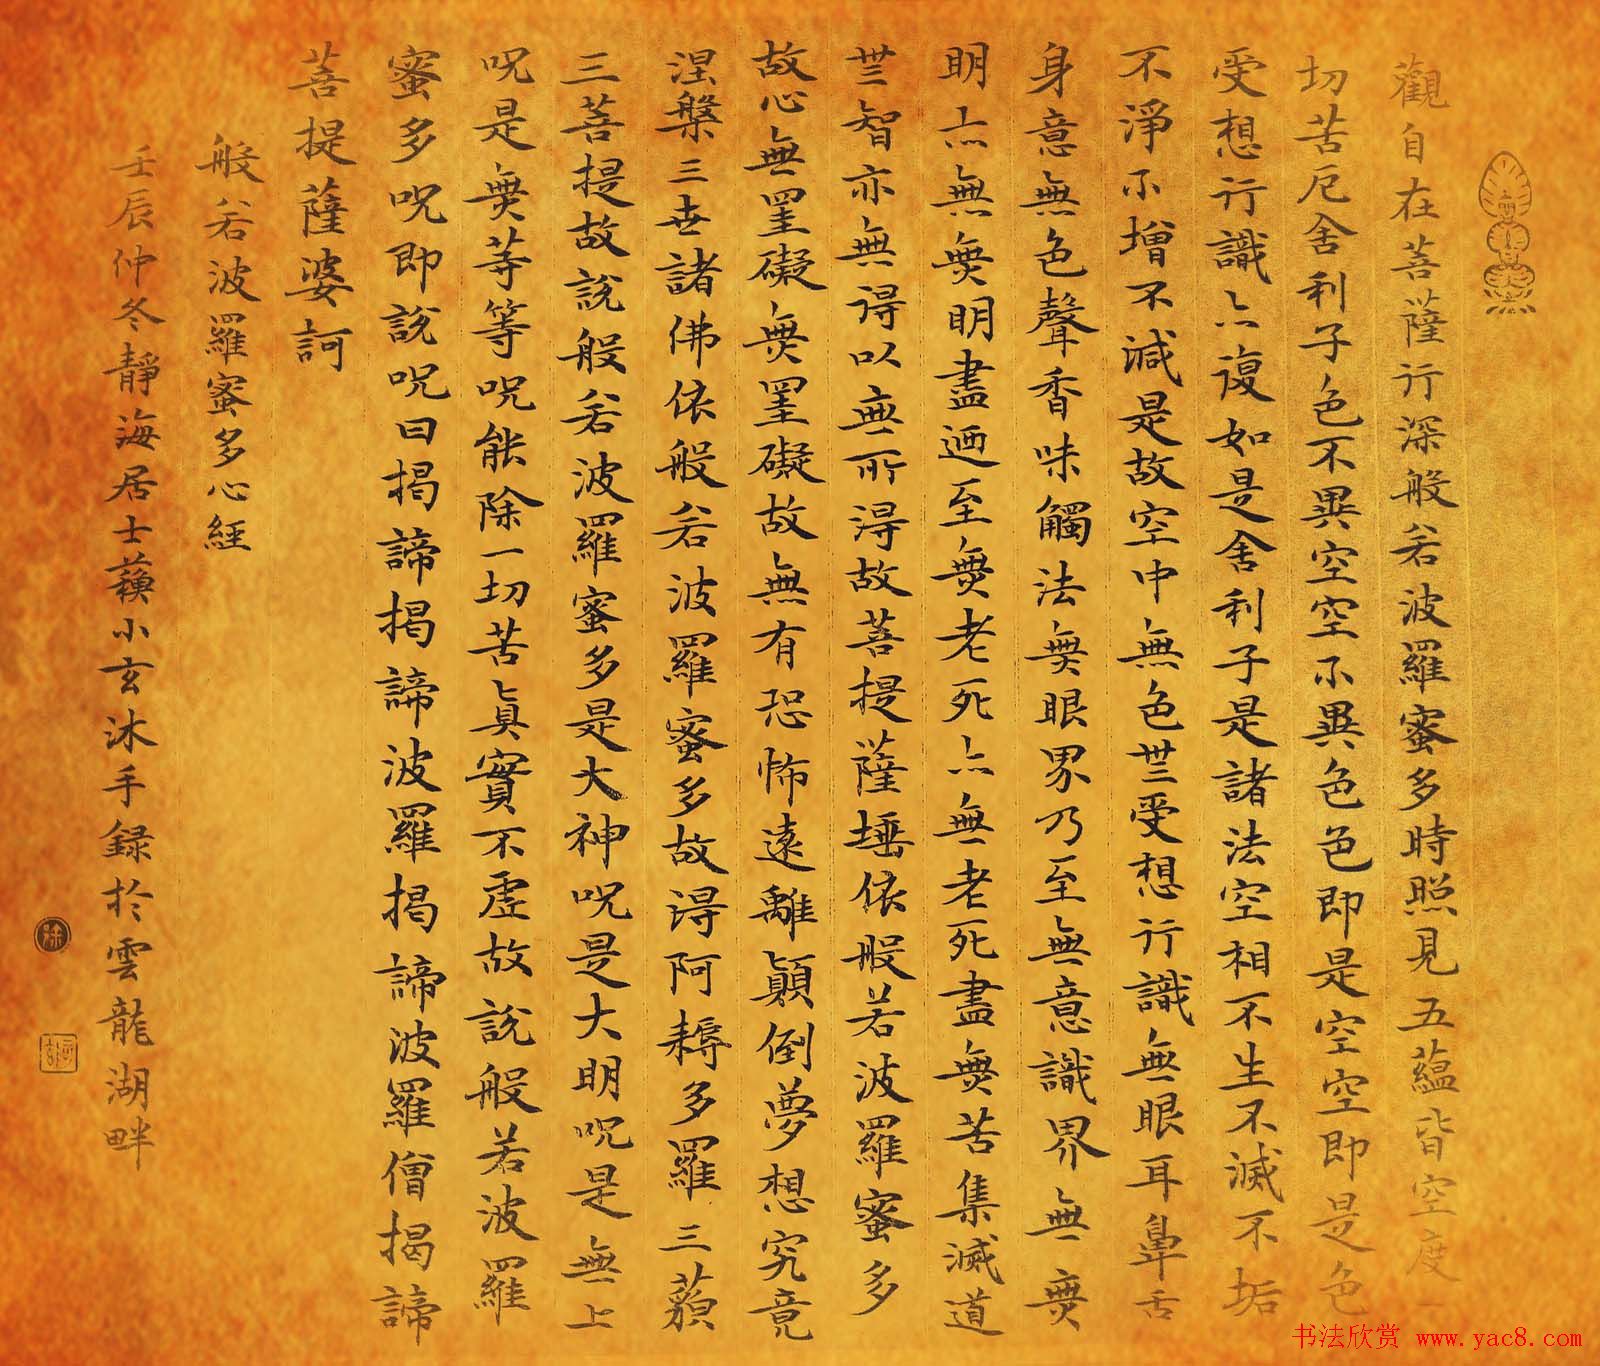 觀自在菩薩行深般若波羅蜜多時照見五蘊皆空度一
切苦厄舍利子色不異空空不異色色即是空空即是色
受想行識亦復如是舍利子是諸法空相不生不滅不垢
不淨不增不減是故空中無色無受想行識無眼耳鼻舌
身意無色聲香味觸法無眼界乃至無意識界無無
明亦無無明盡迺至無老死亦無老死盡無苦集滅道
無智亦無得以無所得故菩提薩埵依般若波羅蜜多
故心無罣礙無罣礙故無有恐怖遠離顛倒夢想究竟
涅槃三世諸佛依般若波羅蜜多故得阿耨多羅三藐
三菩提故說般若波羅蜜多是大神咒是大明咒是無上
咒是無等等咒能除一切苦真實不虛故說般若波羅
蜜多咒即說咒曰揭諦揭諦波羅揭諦波羅僧揭諦
菩提薩婆訶
般若波羅蜜多心經
壬辰仲冬靜海居士蘋小玄沐手録於雲龍湖畔
书法欣赏 www.yac8.com